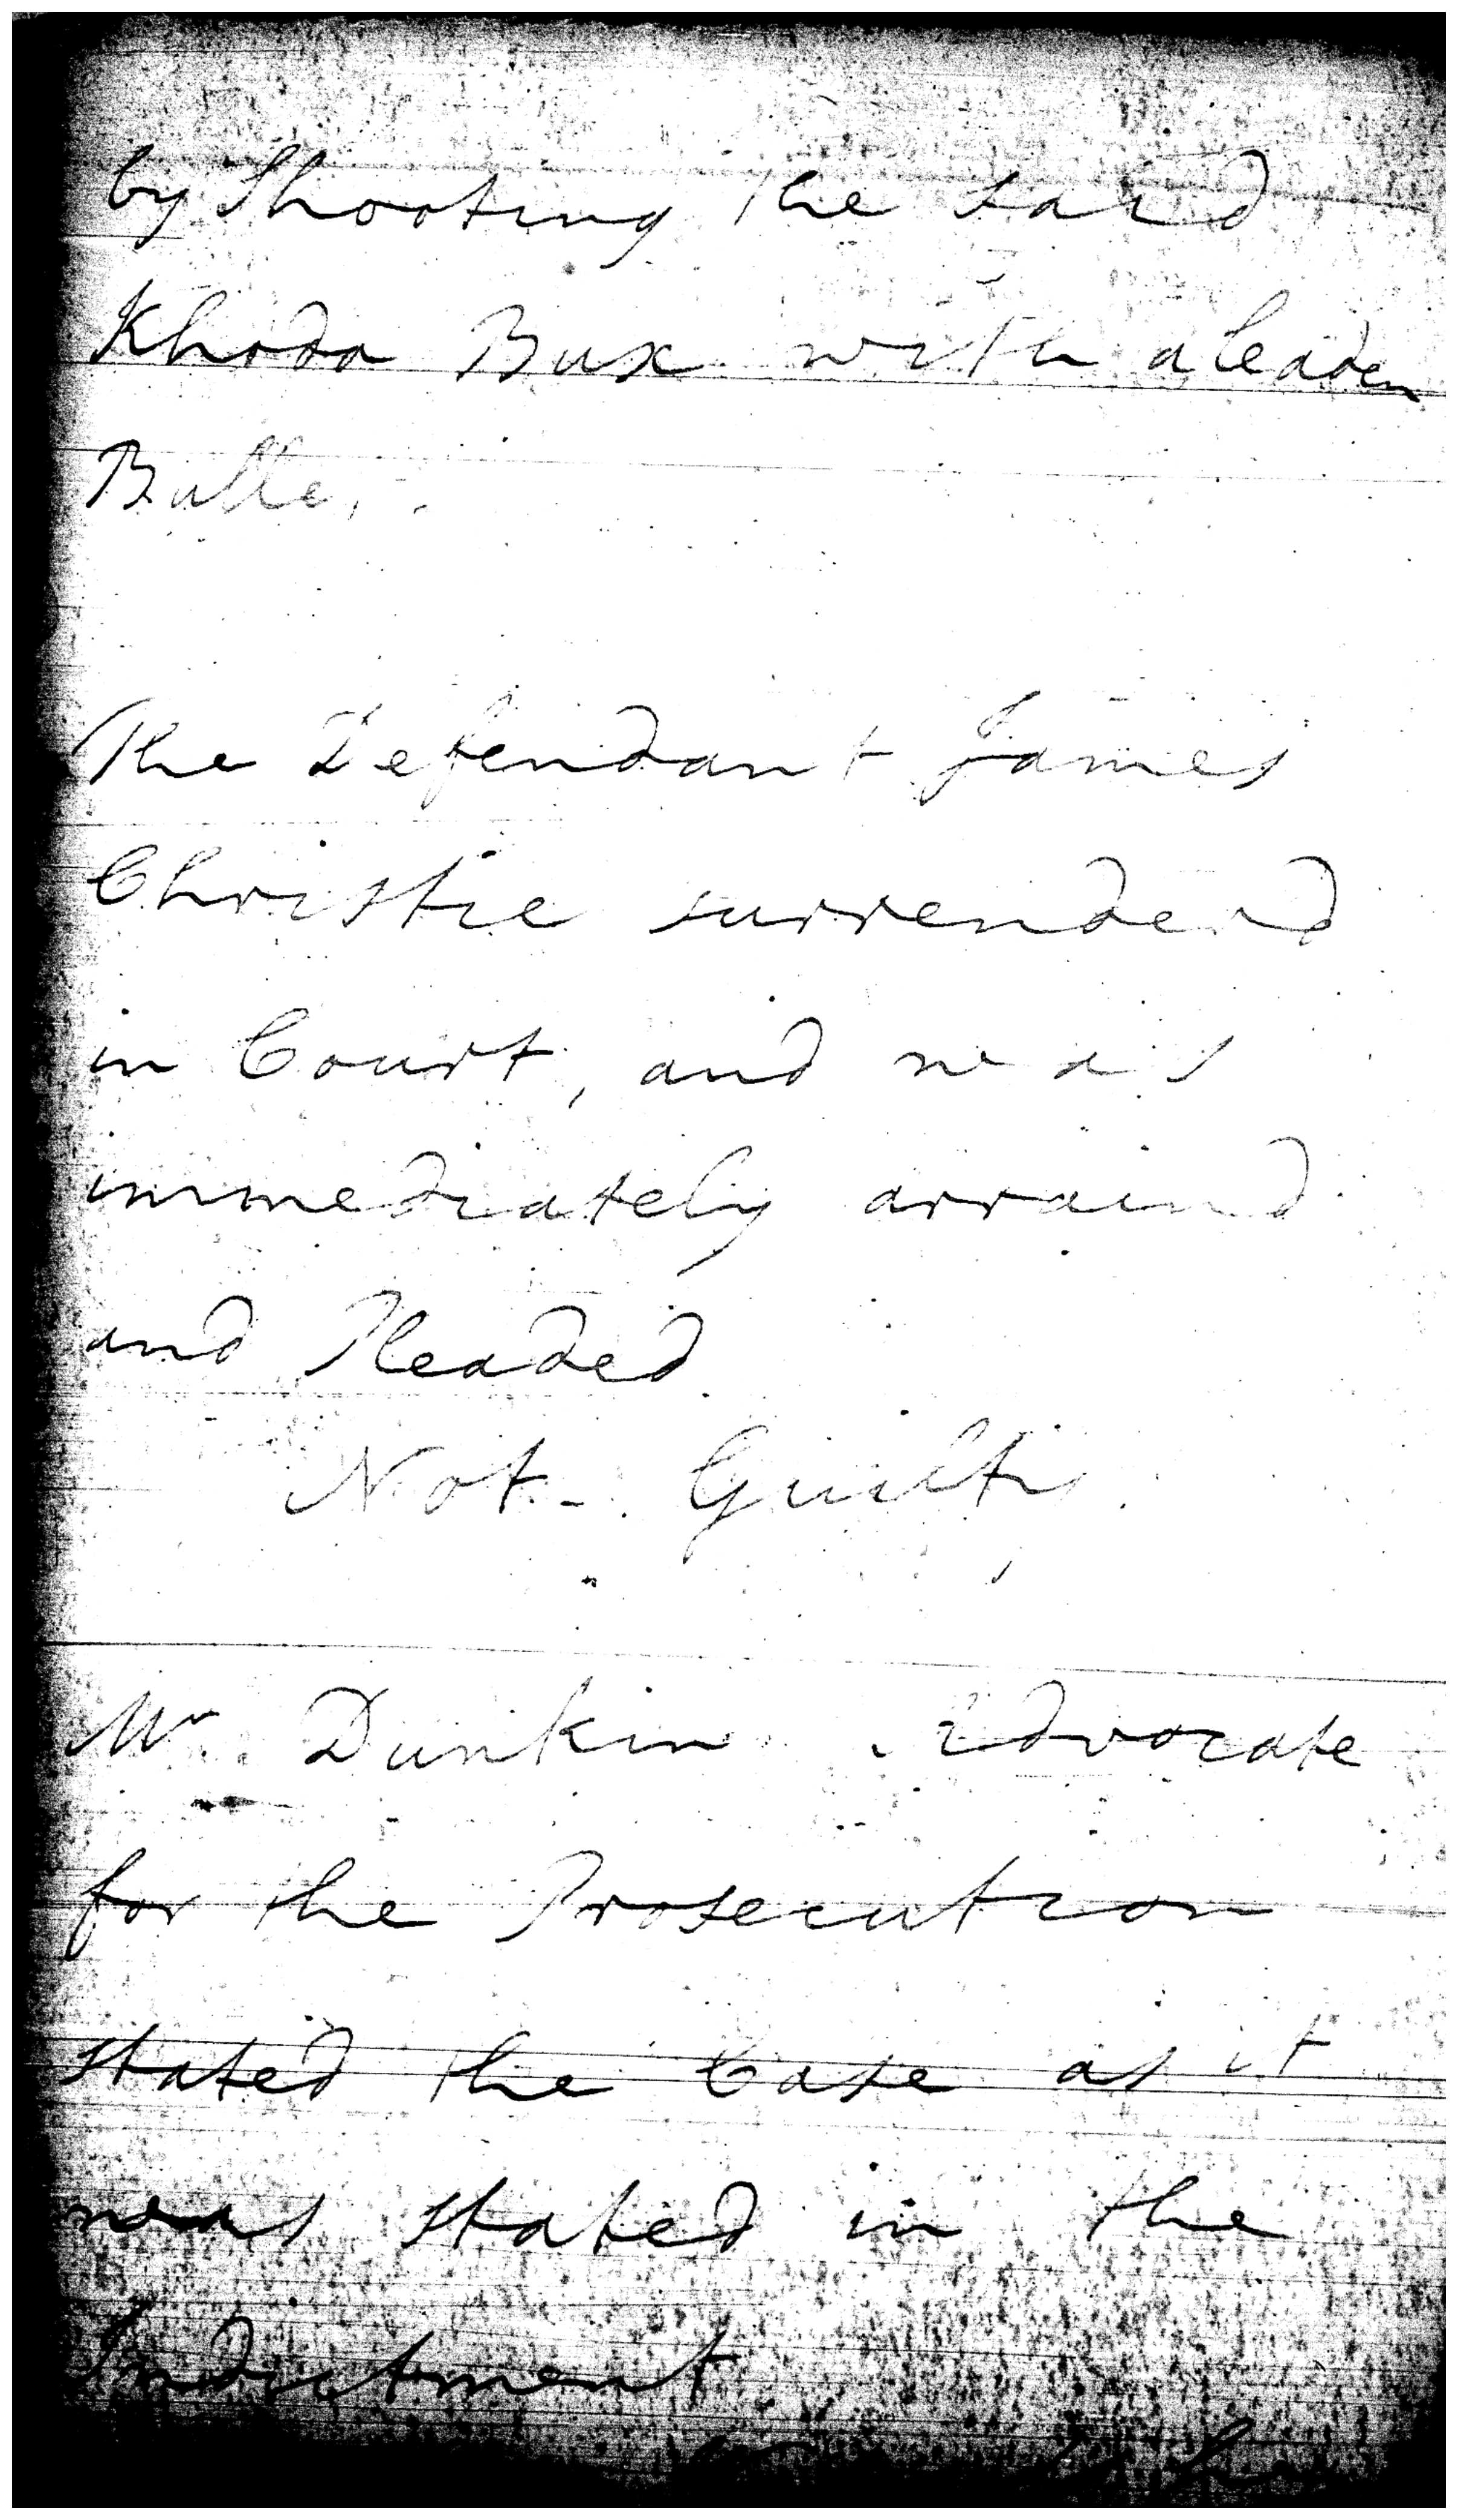 by Shooting the said
Khoda Bux with a leaden
Bullet.
The Defendant James
Christie surrenderd
in Court, and was
immediately arraind
and Pleaded
Not Guilty.
Mr. Dunkin Advocate
for the Prosecution
stated the Case as it
was stated in the
Indictment